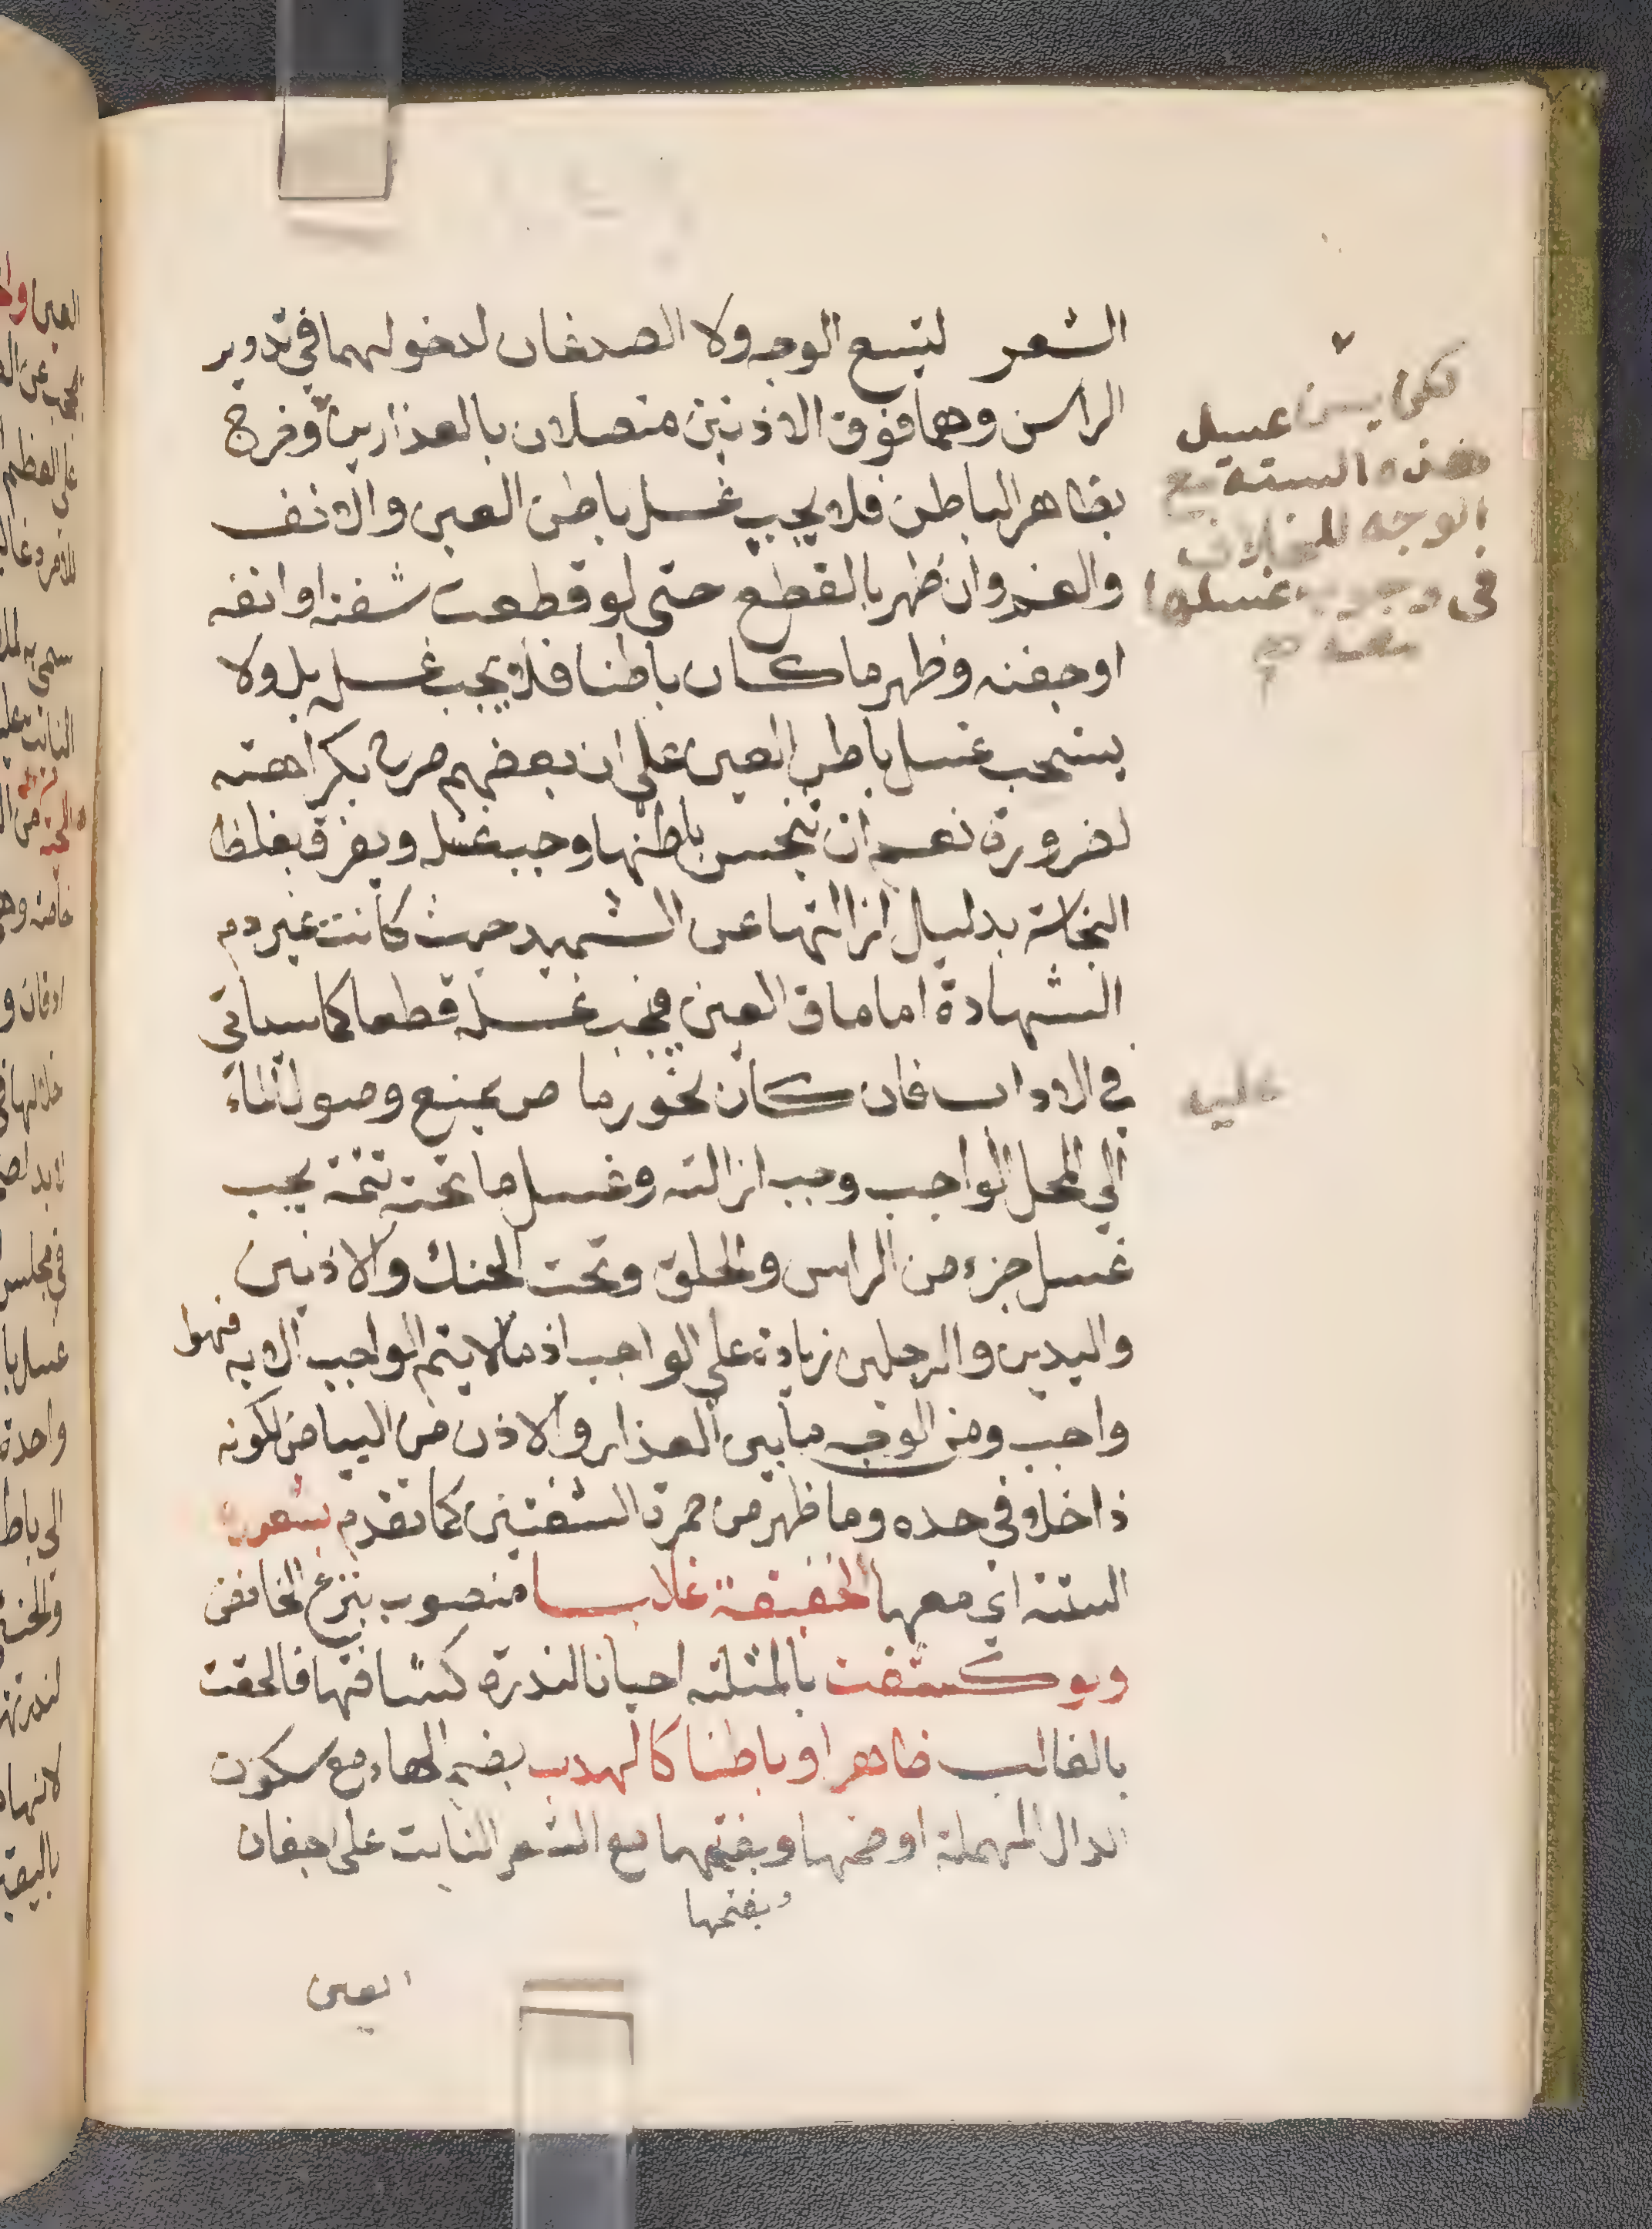 الشعر ليتسع الوجه ولا الصدغان لدخولهما في تدوير
الراس وهما فوق الاذنين متصلان بالعذارين وخرج
بظاهر الباطن فلا يجب غسل باطن العين والانف
والفم وان ظهر بالقطع حتى لو قطعت شفته او انفه
او جفنه وظهر ما كان باطنا فلا يجب غسله بل ولا
يستحب غسل باطن العين على ان بعضهم صرح بكراهته
لضرورة نعم ان تنجس باطنها وجب غسله ويفرق بغلظ
النجاسة بدليل ازالتها عن الشهيد حيث كانت غير دم
الشهادة اما ماق العين فيجب غسله قطعا كما سياتي
في الاداب فان كان نحو رماص يمنع وصول الماء
الي المحل الواجب وجب ازالته وغسل ما تحته تتمة يجب
غسل جزء من الراس والحلق وتحت الحنك والاذنين
واليدين والرجلين زيادة على الواجب اذ ما لا يتم الواجب الا به فهو
واجب ومن الوجه ما بين العذار والاذن من البياض لكونه
داخلا في حده وما ظهر من حمرة الشفتين كما تقدم شعوره
الستة اي معها الخفيفة غالبا منصوب بنزع الخافض
ولو كثفت بالمثلثه احيانا لندرة كثافتها فالحقت
بالغالب ظاهرا وباطنا كالهدب بضم الهاء مع سكون
الدال المهملة او ضمها وبفتحهما مع الشعر النابت على اجفان
وبفتحها
العين
لكن يسن غسل
هذه الستة مع
الوجه للخلاف
في وجوب غسلها
معه صح